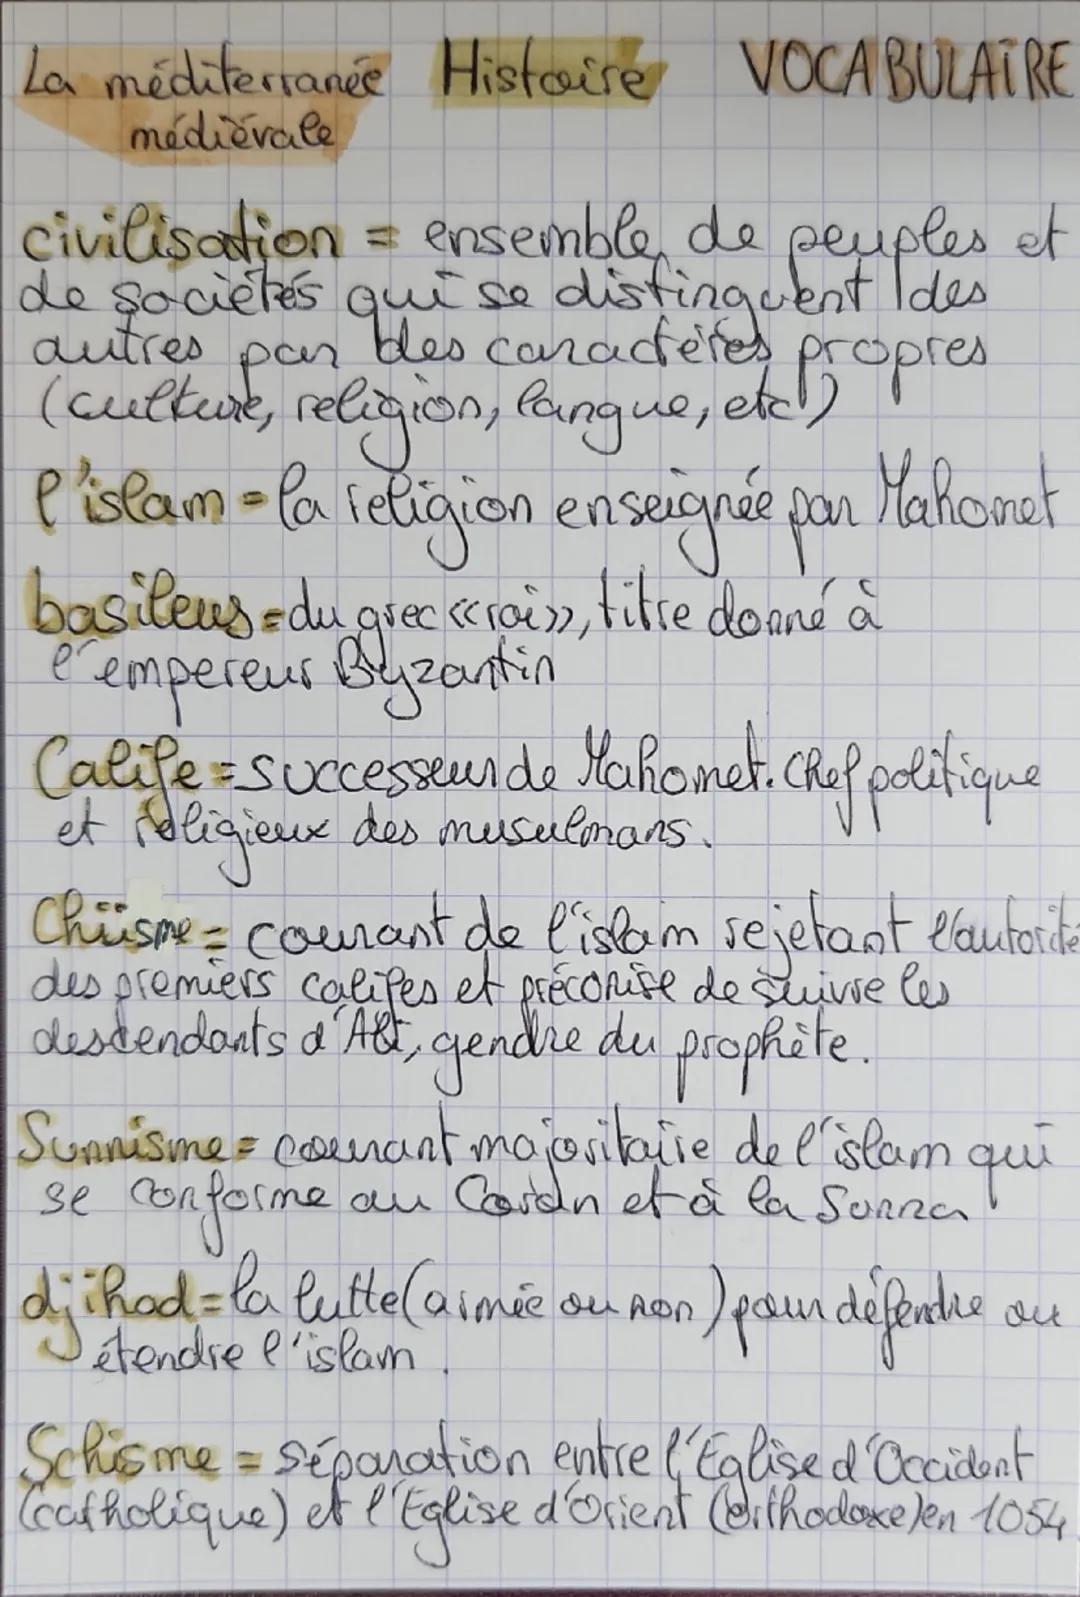 La méditerranée Histoire VOCABULAIRE
médiévale
civilisation = ensemble de peuples et
de sociétés qui se distinguent des
autres par des caractères propres
(culture, religion, langue, etc)
l'islam = la religion enseignée par Mahomet
basileus = du grec «roi», titre donné à
l'empereur Byzantin
Calife = successeur de Mahomet. Chef politique
et religieux des musulmans.
Chiisme = courant de l'islam rejetant l'autorité
des premiers califes et préconise de suivre les
descendants d'Ali, gendre du prophète.
Sunnisme = courant majoritaire de l'islam qui
se conforme au Coran et à la Sunna
djihad = la lutte (armée ou non) pour défendre ou
étendre l'islam.
Schisme = séparation entre l'Église d'Occident
(catholique) et l'Église d'Orient (orthodoxe) en 1054